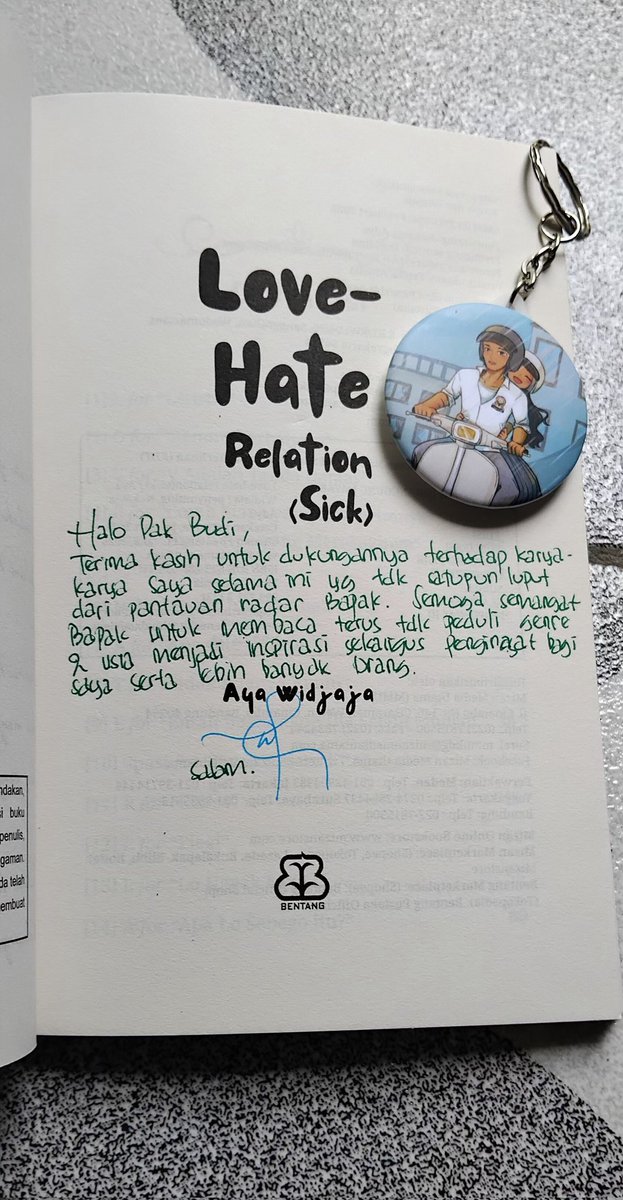 Love-
Hate
Relation
(Sick)
Halo Pak Budi,
Terima kasih untuk dukungannya terhadap karya-
karya saya selama ini yg tdk satupun luput
dari pantauan radar Bapak. Semoga semangat
Bapak untuk membaca terus tdk peduli genre
& usia menjadi inspirasi sekaligus pengingat bagi
saya serta lebih banyak orang.
Aya Widjaja
salam.
BENTANG
ndakan,
si buku
penulis,
gaman.
da telah
embuat